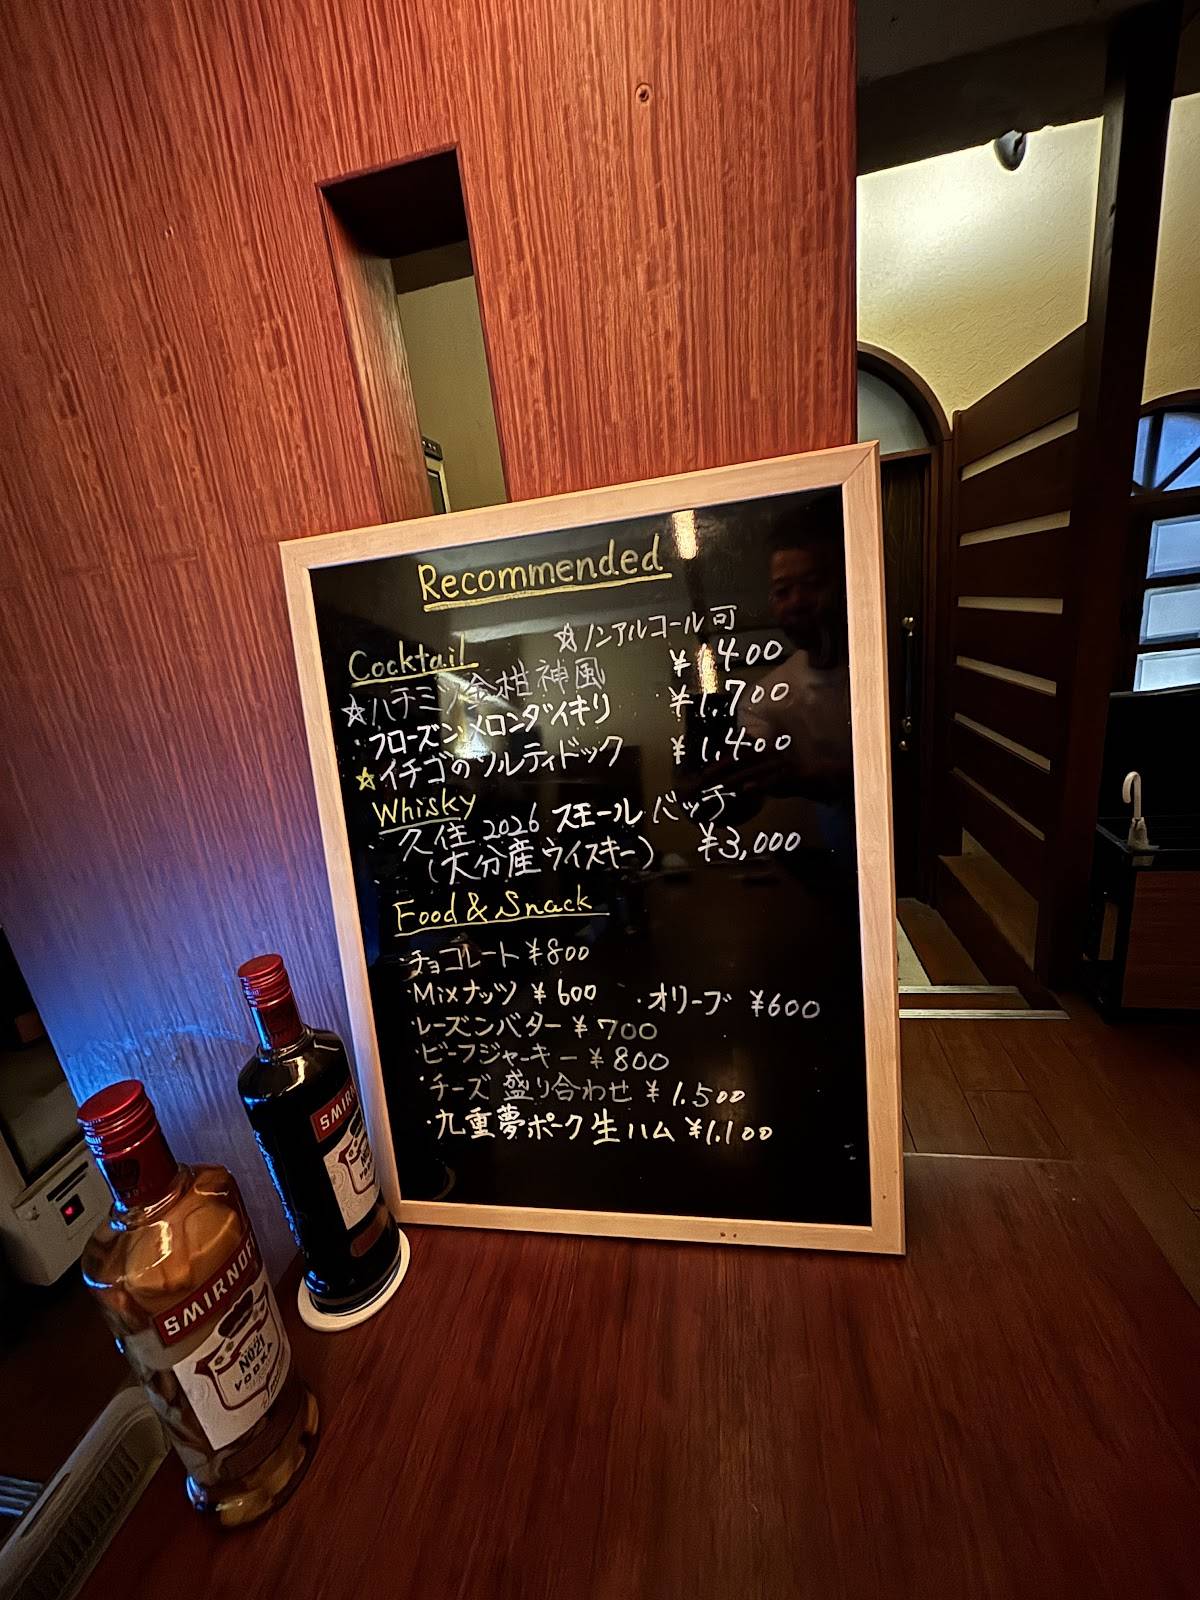 Recommended
☆ノンアルコール可
Cocktail
☆ハチミツ金柑神風 ¥1,400
・フローズンメロンダイキリ ¥1,700
☆イチゴのソルティドック ¥1,400
Whisky
・久住 2026 スモールバッチ
(大分産ウイスキー) ¥3,000
Food & Snack
・チョコレート ¥800
・Mixナッツ ¥600 ・オリーブ ¥600
・レーズンバター ¥700
・ビーフジャーキー ¥800
・チーズ 盛り合わせ ¥1.500
・九重夢ポーク生ハム ¥1.100
SMIRNOFF
No.21
VODKA
SMIRN